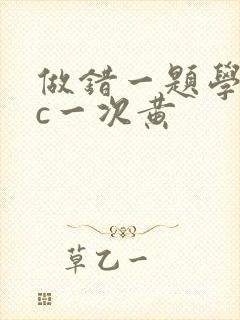 做錯一題學
c一次黄
草乙一